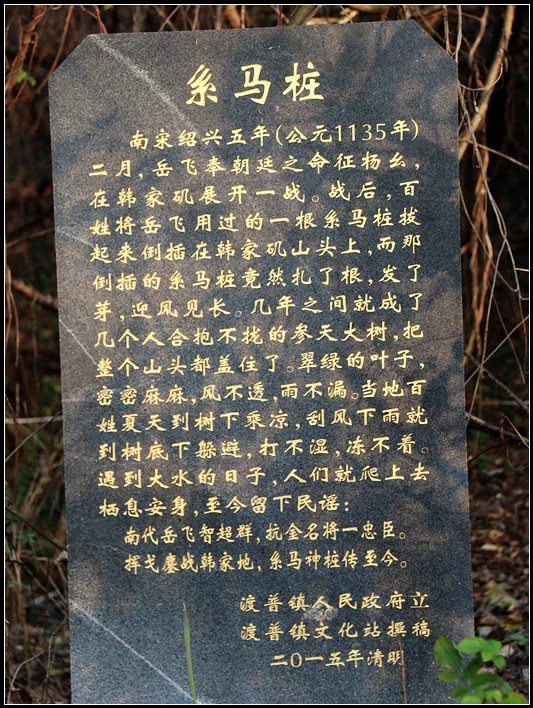 系马桩
南宋绍兴五年(公元1135年)
二月,岳飞奉朝廷之命征杨幺,
在韩家矶展开一战。战后,百
姓将岳飞用过的一根系马桩拔
起来倒插在韩家矶山头上,而那
倒插的系马桩竟然扎了根,发了
芽,迎风见长。几年之间就成了
几个人合抱不拢的参天大树,把
整个山头都盖住了。翠绿的叶子,
密密麻麻,风不透,雨不漏。当地百
姓夏天到树下乘凉,刮风下雨就
到树底下躲避,打不湿,冻不着。
遇到大水的日子,人们就爬上去
栖息安身,至今留下民谣:
南代岳飞智超群,抗金名将一忠臣。
挥戈鏖战韩家地,系马神桩传至今。
渡普镇人民政府立
渡普镇文化站撰稿
二〇一五年清明